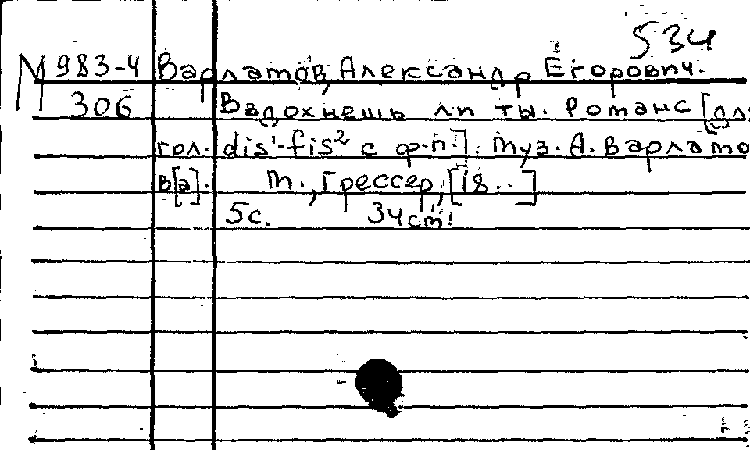 534
М 983-4 Варламов, Александр Егорович.
306 Вздохнешь ли ты. Романс [для
гол. dis¹-fis² с ф-п.]. Муз. А. Варламо
в[а]. М., Грессер, [18..]
5с. 34см.